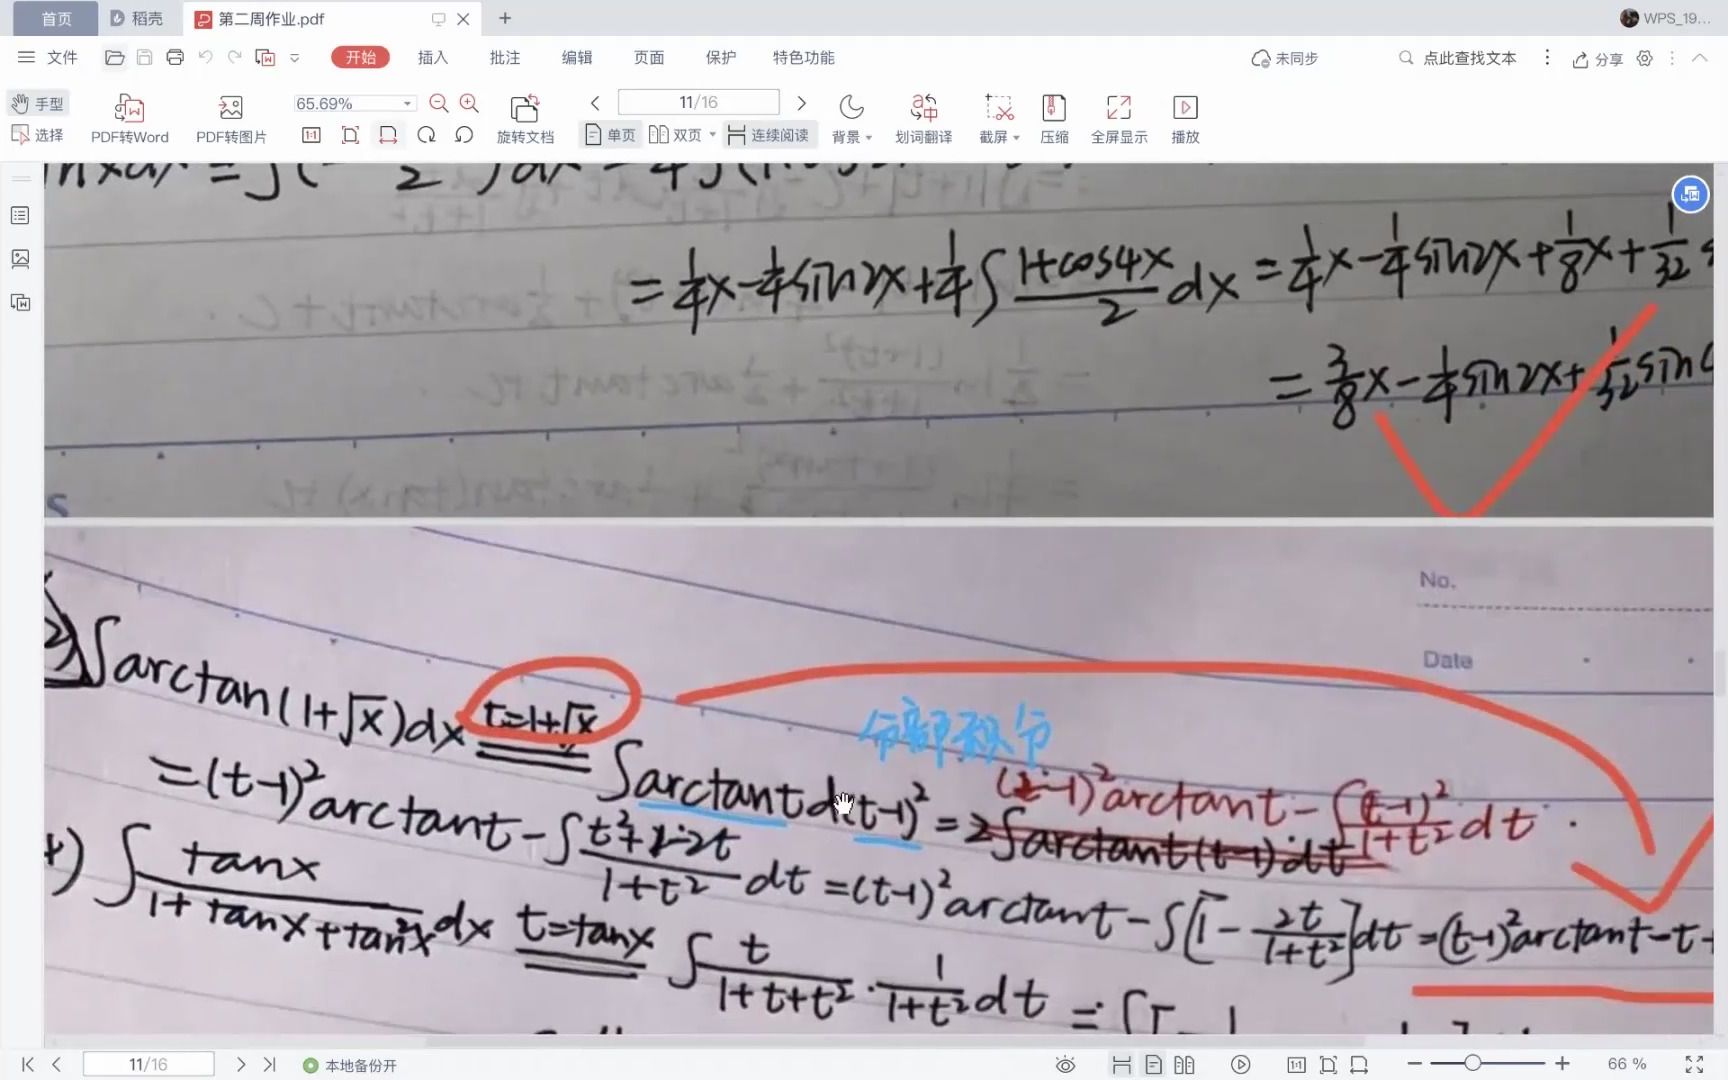 首页 稻壳 第二周作业.pdf WPS_19...
文件 开始 插入 批注 编辑 页面 保护 特色功能 未同步 点此查找文本 分享
手型 65.69% 11/16
选择 PDF转Word PDF转图片 旋转文档 单页 双页 连续阅读 背景 划词翻译 截屏 压缩 全屏显示 播放
= 1/4 x - 1/4 sin2x + 1/4 ∫ (1+cos4x)/2 dx = 1/4 x - 1/4 sin2x + 1/8 x + 1/32
= 3/8 x - 1/4 sin2x + 1/32 sin
No.
Date
2) ∫ arctan(1+√x)dx t=1+√x ∫ arctant d(t-1)² = (t-1)² arctant - ∫ (t-1)²/(1+t²) dt.
分部积分
2∫arctant(t-1)dt
= (t-1)² arctant - ∫ (t²+1-2t)/(1+t²) dt = (t-1)² arctant - ∫[1 - 2t/(1+t²)]dt = (t-1)² arctant - t
4) ∫ tanx/(1+tanx+tan²x) dx t=tanx ∫ t/(1+t+t²) · 1/(1+t²) dt =
11/16 本地备份开 66 %